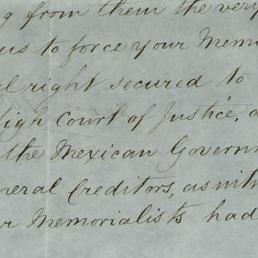 g from them the very
us to force your Memo
al right secured to
eign Court of Justice, a
the Mexican Govern
neral Creditors, as with
r Memorialists had